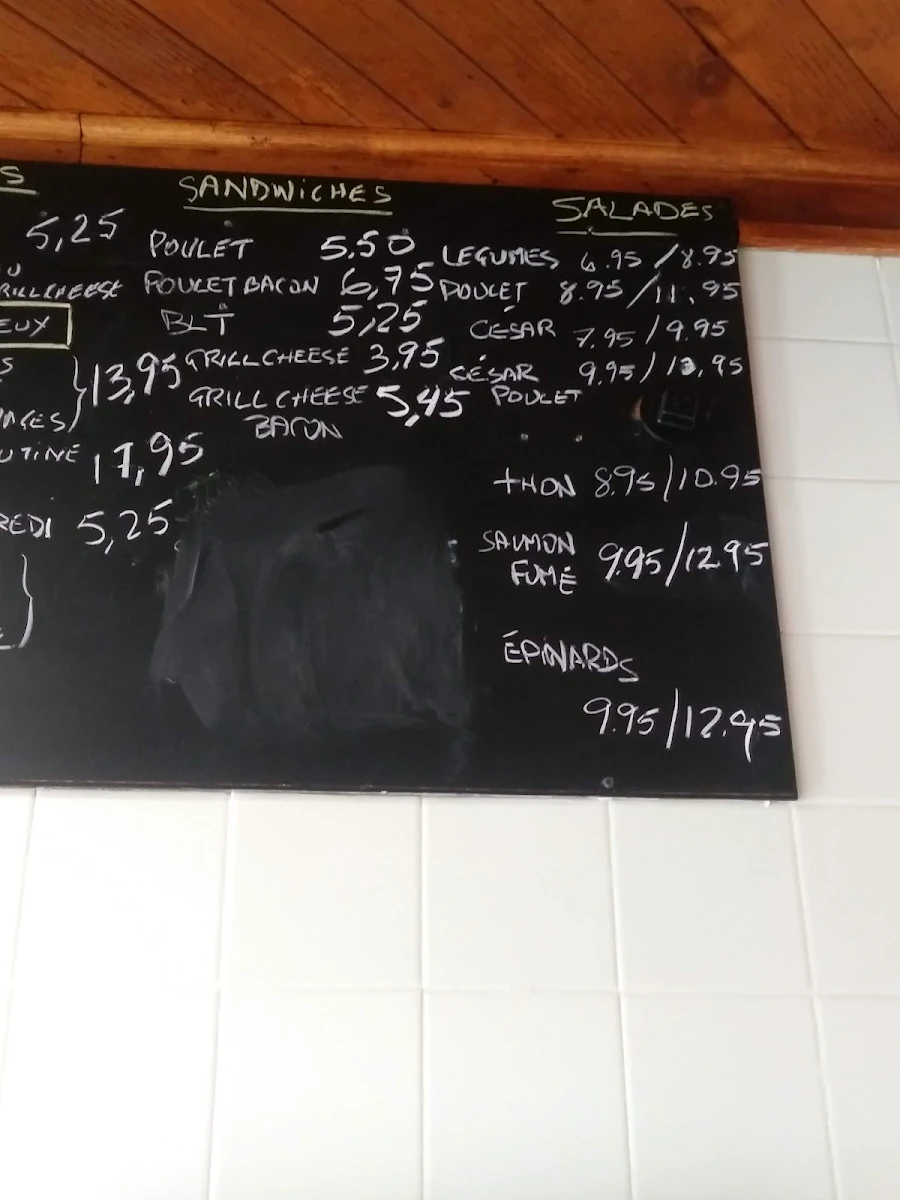 S
5,25
RILLCHEESE
EUX
S
13,95
AGES
UTINE 17,95
REDI 5,25
SANDWICHES
POULET 5.50
POULET BACON 6,75
BLT 5,25
GRILL CHEESE 3,95
GRILL CHEESE 5,45
BACON
SALADES
LEGUMES 6.95 / 8.95
POULET 8.95 / 11.95
CÉSAR 7.95 / 9.95
CÉSAR 9.95 / 13,95
POULET
THON 8.95 / 10.95
SAUMON
FUMÉ 9.95 / 12.95
ÉPINARDS
9.95 / 12.95